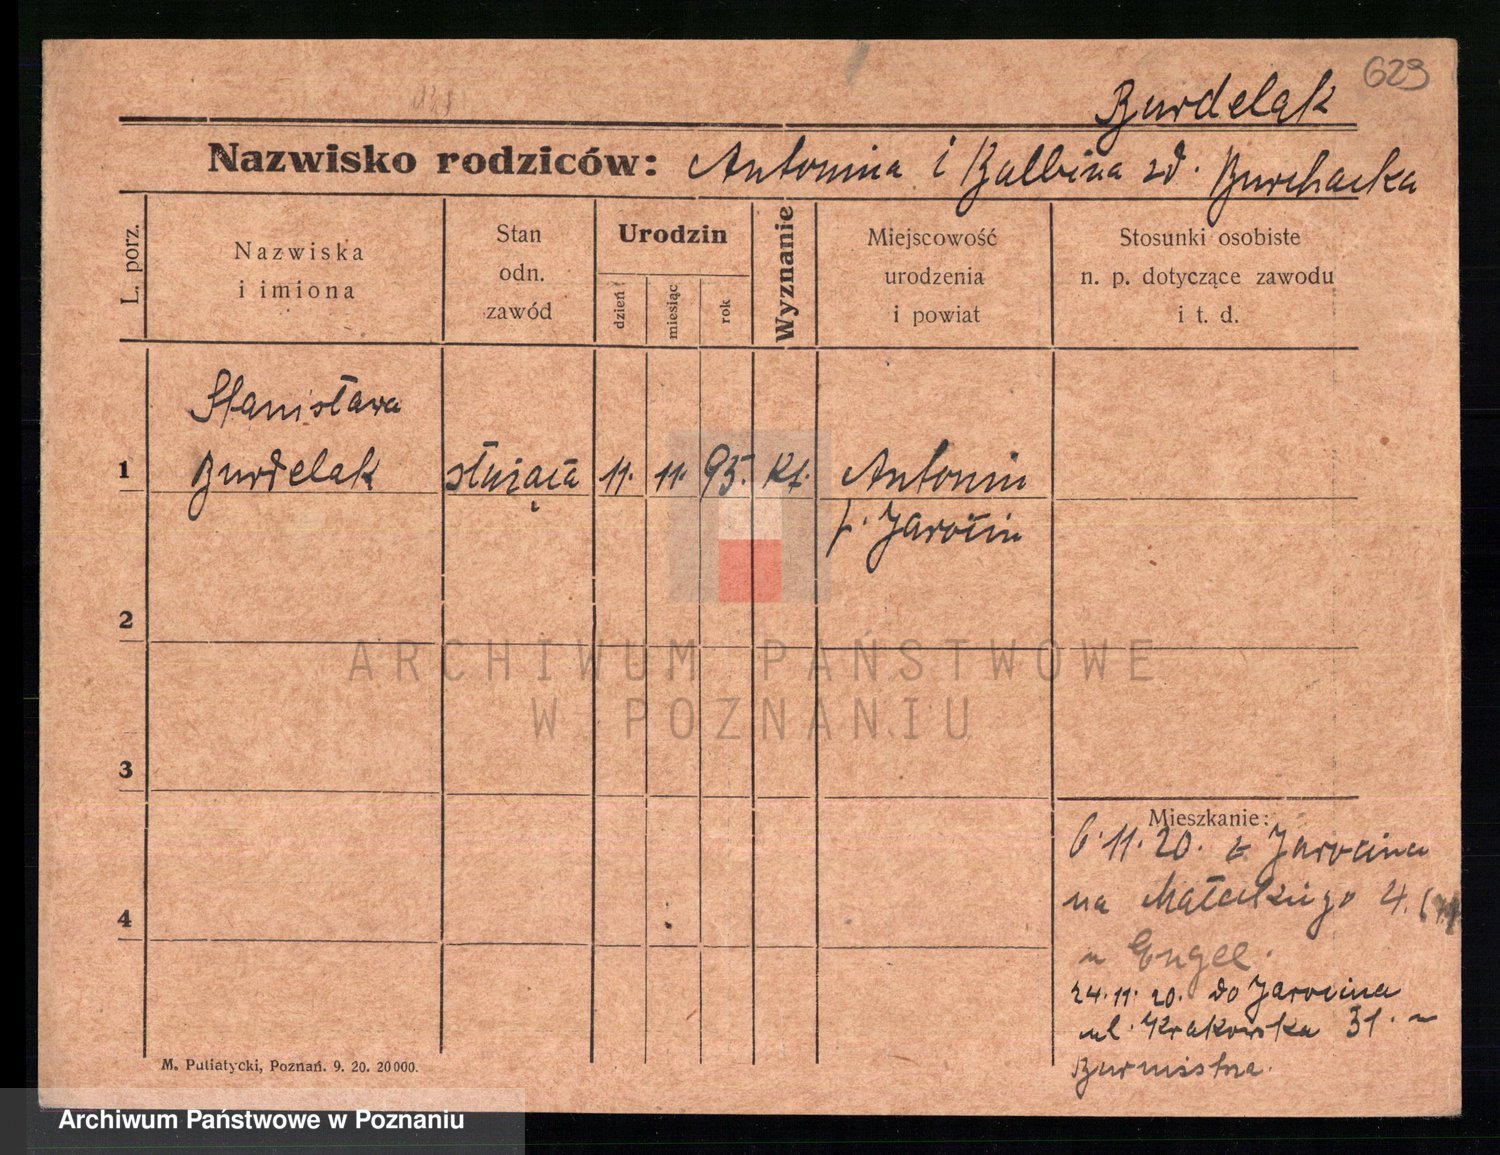 629
Burdelak
Nazwisko rodziców: Antonina i Balbina zd. Burchacka
L. porz.
Nazwiska
i imiona
Stan
odn.
zawód
Urodzin
dzień
miesiąc
rok
Wyznanie
Miejscowość
urodzenia
i powiat
Stosunki osobiste
n. p. dotyczące zawodu
i t. d.
Stanisława
1 Burdelak służąca 11. 11. 95. kt. Antonin
p. Jarocin
2
3
4
Mieszkanie:
6.11.20. z Jarocina
na Małeckiego 4.
u Engel.
24.11.20. do Jarocina
ul. Krakowska 31. u
Burmistrza.
M. Putiatycki, Poznań. 9. 20. 20000.
ARCHIWUM PAŃSTWOWE
W POZNANIU
Archiwum Państwowe w Poznaniu